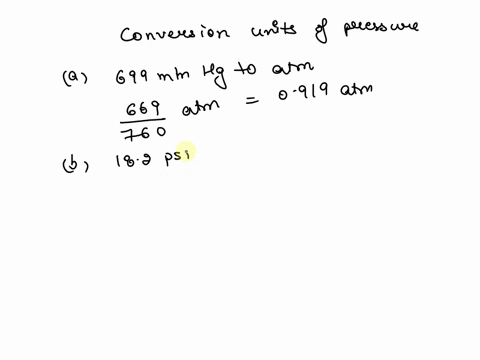 Conversion units of pressure
(a) 699 mm Hg to atm
669/760 atm = 0.919 atm
(b) 18.2 psi